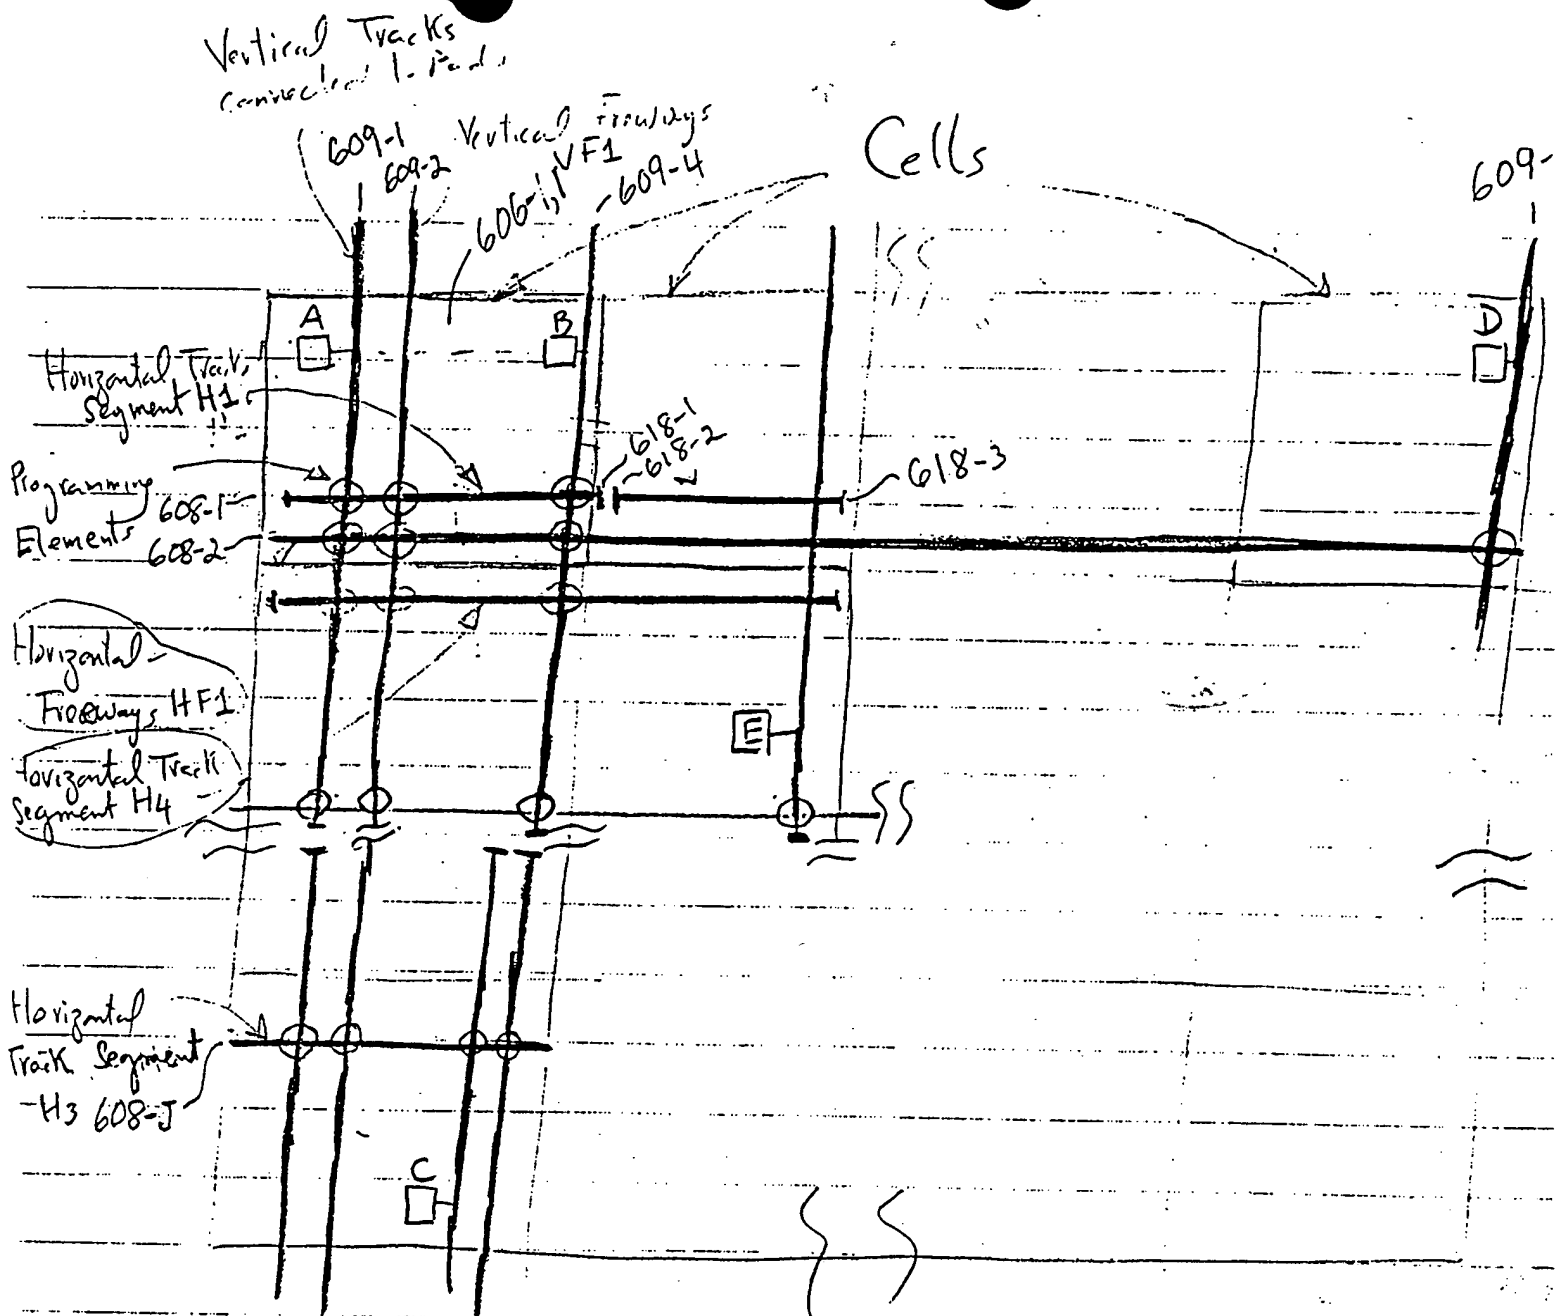 Vertical Tracks
connected to Pads
609-1
609-2
Vertical Freeways
VF1
606-1,1
609-4
Cells
609-
A
B
D
Horizontal Track
Segment H1
618-1
618-2
618-3
Programming
Elements
608-1
608-2
Horizontal
Freeways HF1
E
Horizontal Track
Segment H4
Horizontal
Track Segment
H3 608-J
C